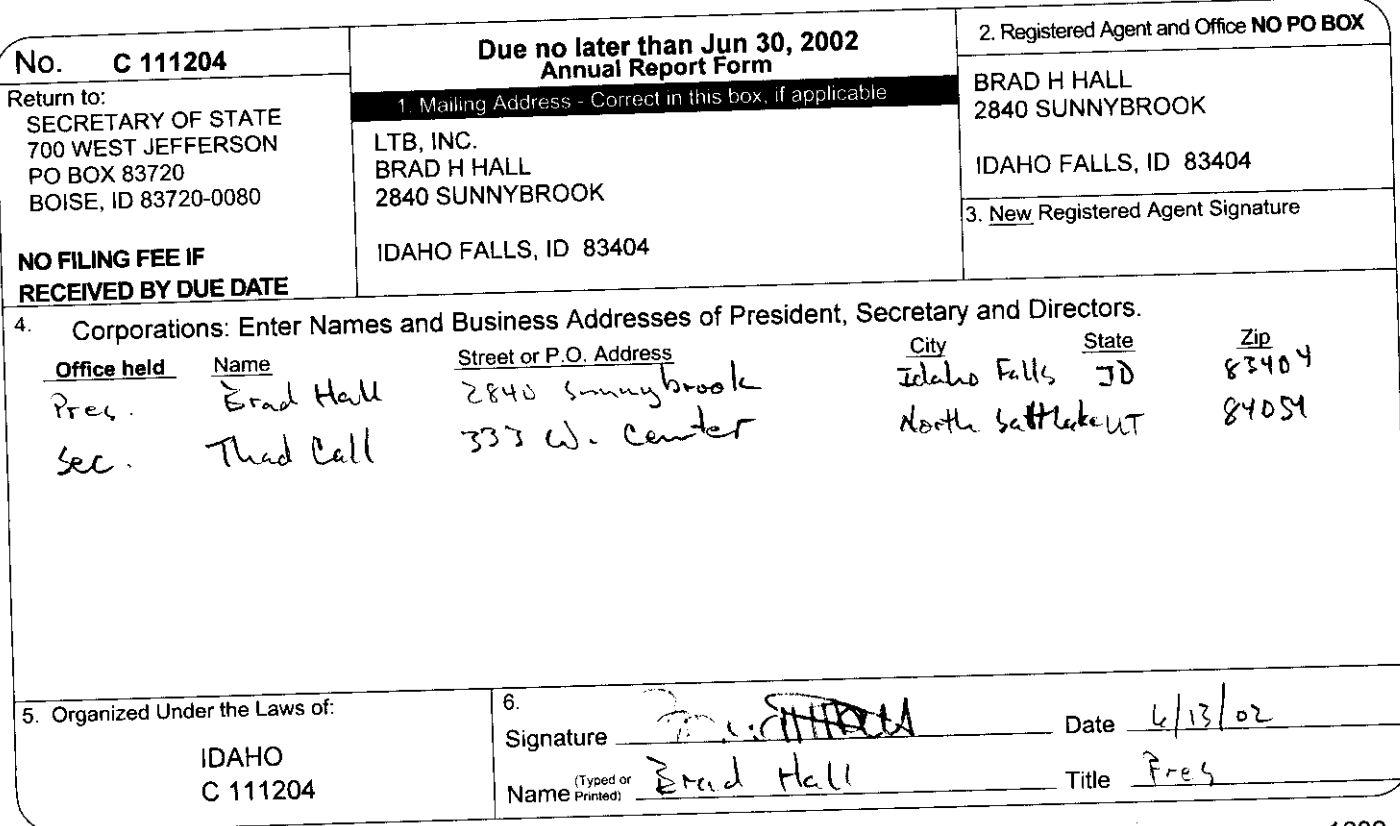 No. C 111204
Return to:
SECRETARY OF STATE
700 WEST JEFFERSON
PO BOX 83720
BOISE, ID 83720-0080
NO FILING FEE IF
RECEIVED BY DUE DATE
Due no later than Jun 30, 2002
Annual Report Form
1. Mailing Address - Correct in this box, if applicable
LTB, INC.
BRAD H HALL
2840 SUNNYBROOK
IDAHO FALLS, ID 83404
2. Registered Agent and Office NO PO BOX
BRAD H HALL
2840 SUNNYBROOK
IDAHO FALLS, ID 83404
3. New Registered Agent Signature
4. Corporations: Enter Names and Business Addresses of President, Secretary and Directors.
Office held Name Street or P.O. Address City State Zip
Pres. Brad Hall 2840 Sunnybrook Idaho Falls ID 83404
Sec. Thad Call 333 W. Center North Salt Lake UT 84054
5. Organized Under the Laws of:
IDAHO
C 111204
6.
Signature Date 6/13/02
Name (Typed or Printed) Brad Hall Title Pres